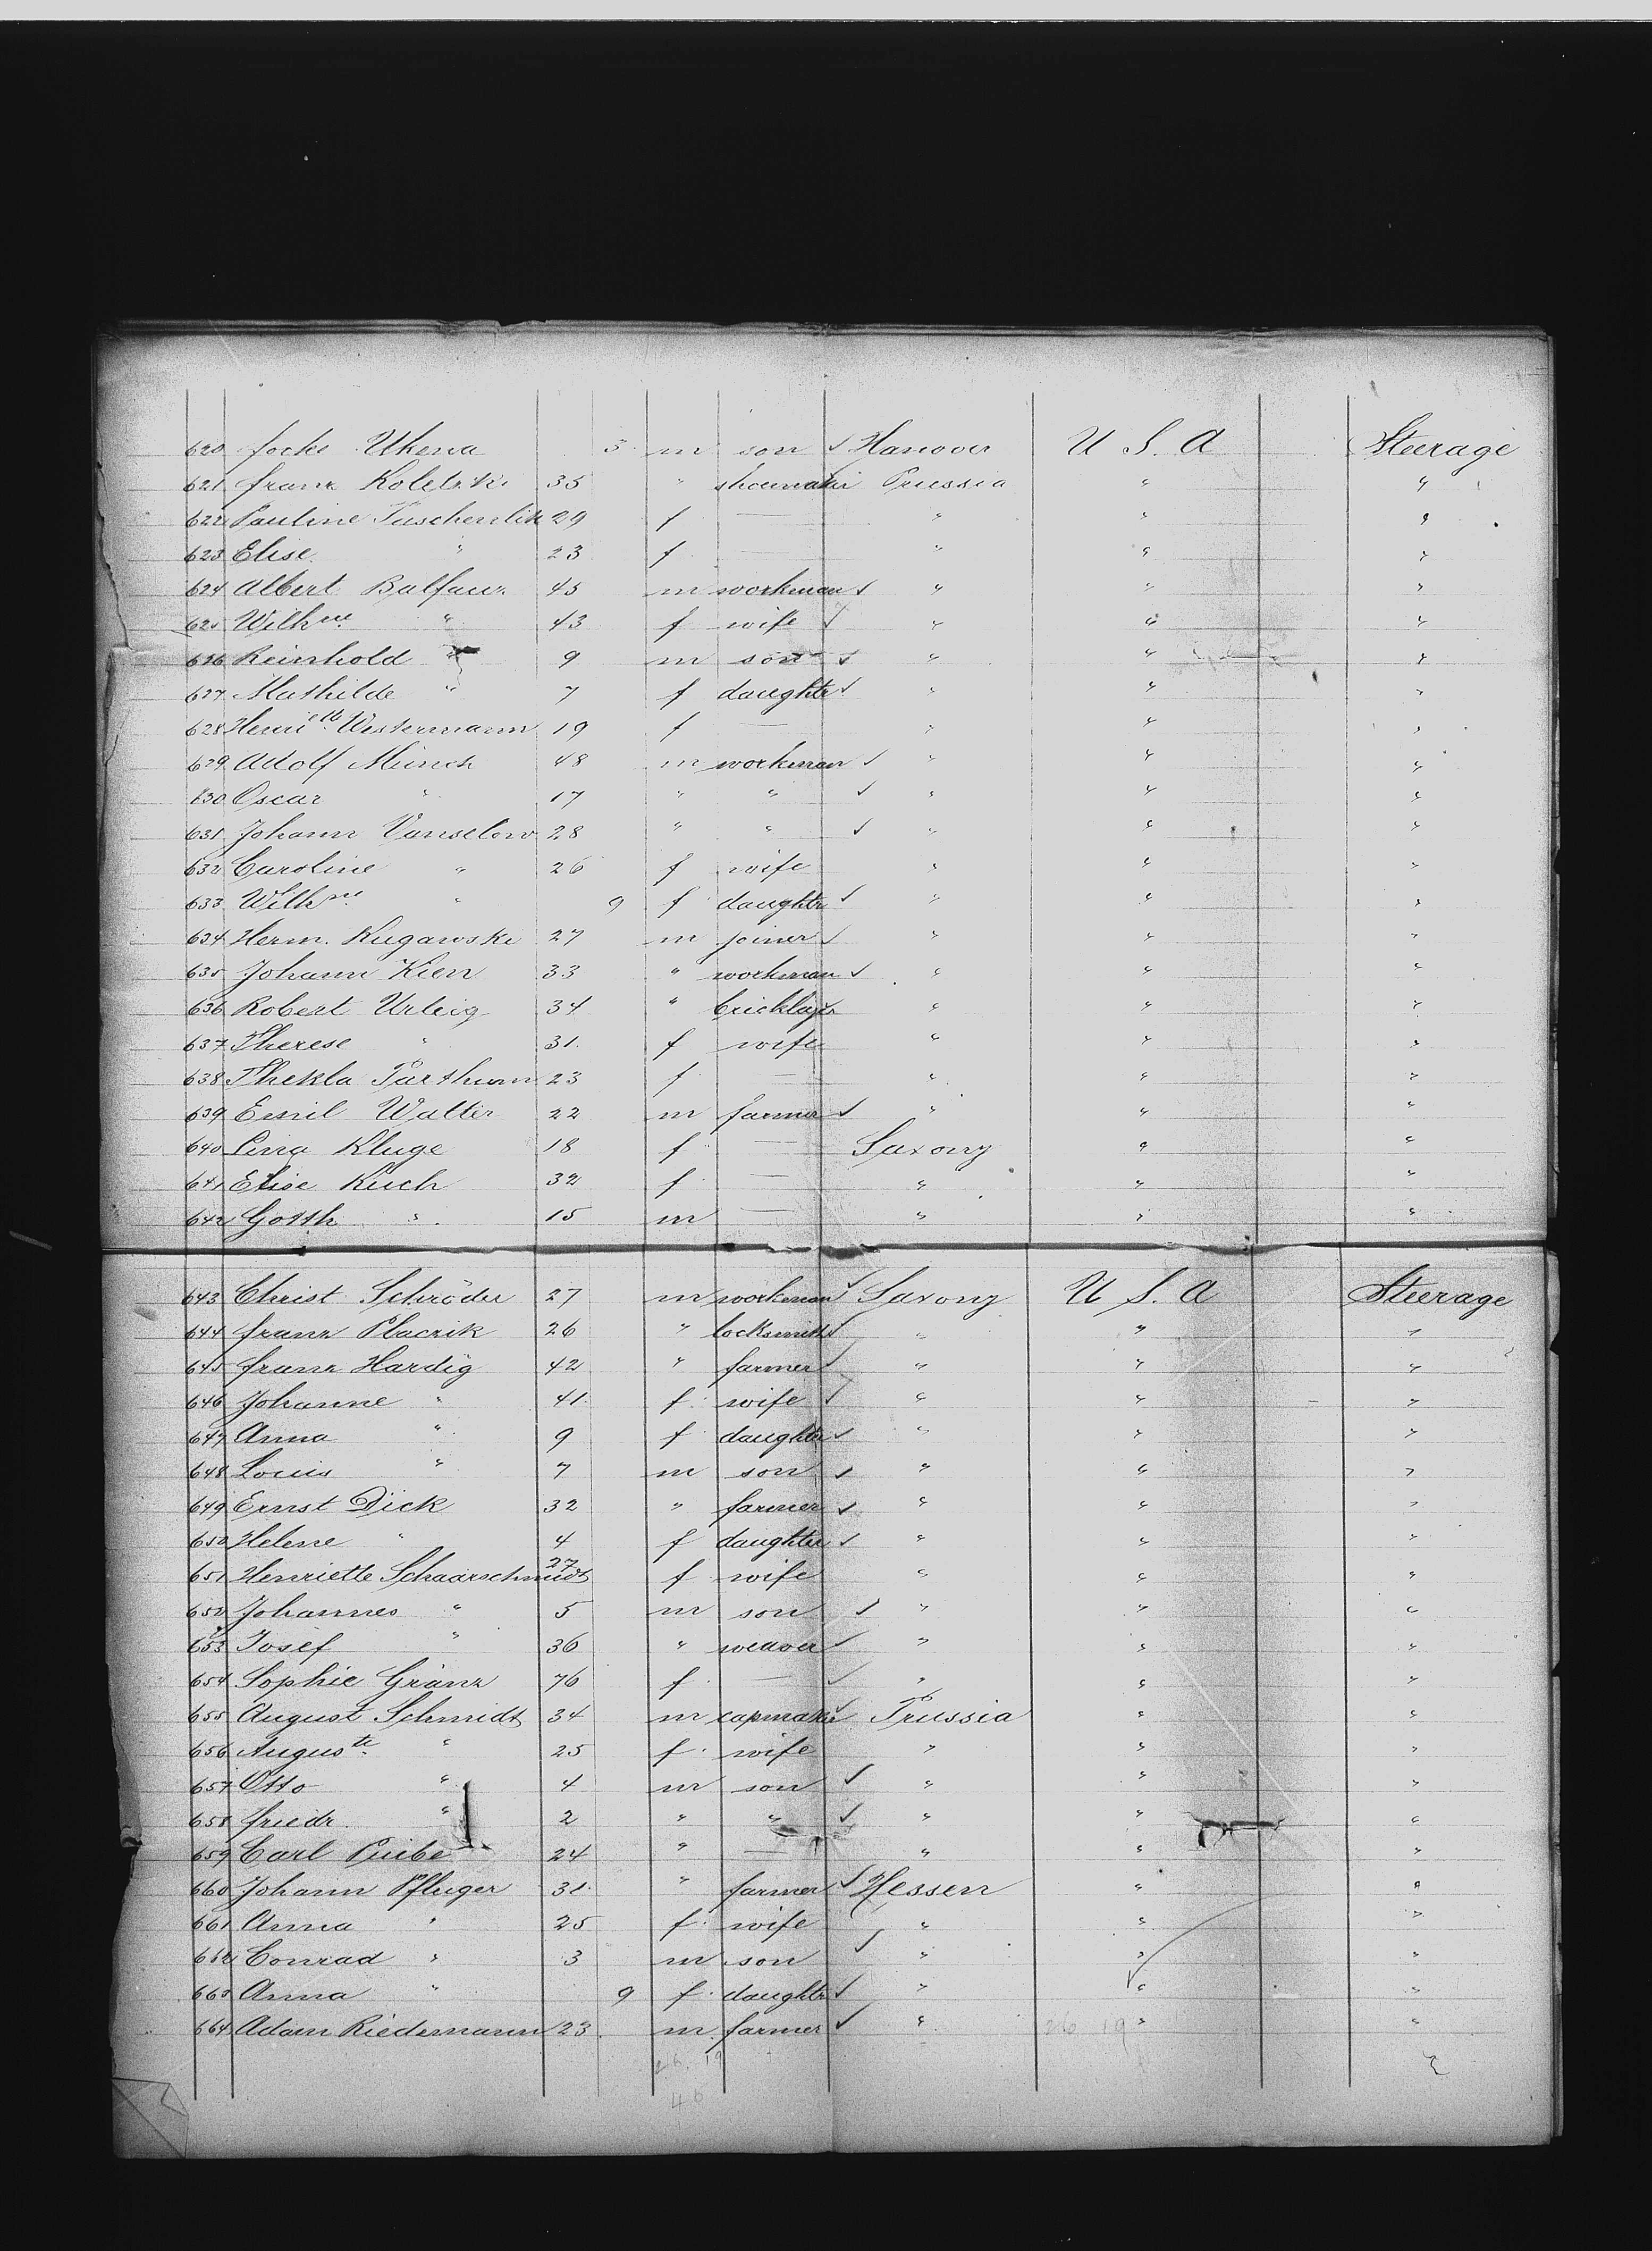 620 Focke Ukena 3 m son ✓ Hanover U S. A Steerage
621 Franz Koletzki 35 " shoemaker Prussia " "
622 Pauline Tuschenlik 29 f — " " "
623 Elise " 23 f — " " "
624 Albert Balfanz 45 m workman ✓ " " "
625 Wilhne " 43 f wife ✓ " " "
626 Reinhold " 9 m son ✓ " " "
627 Mathilde " 7 f daughter ✓ " " "
628 Henritte Westermann 19 f — " " "
629 Adolf Münch 48 m workman ✓ " " "
630 Oscar " 17 " " ✓ " " "
631 Johann Vanselow 28 " " ✓ " " "
632 Caroline " 26 f wife " " "
633 Wilhne " 9 f daughter ✓ " " "
634 Herm. Kugawski 27 m joiner ✓ " " "
635 Johann Kien 33 " workman ✓ " " "
636 Robert Urleig 34 " bricklayer " " "
637 Therese " 31 f wife " " "
638 Thekla Parthum 23 f — " " "
639 Emil Walter 22 m farmer ✓ " " "
640 Lina Kluge 18 f — Saxony " "
641 Elise Kuch 32 f — " " "
642 Gotth " 15 m — " " "
643 Christ Schröder 27 m workman ✓ Saxony U S. A Steerage
644 Franz Placzik 26 " locksmith ✓ " " "
645 Franz Hardig 42 " farmer ✓ " " "
646 Johanne " 41 f wife ✓ " " "
647 Anna " 9 f daughter ✓ " " "
648 Louis " 7 m son ✓ " " "
649 Ernst Dick 32 " farmer ✓ " " "
650 Helene " 4 f daughter ✓ " " "
651 Henriette Schaarschmidt 27 f wife " " "
652 Johannes " 5 m son ✓ " " "
653 Josef " 36 " weaver ✓ " " "
654 Sophie Gränz 76 f — ✓ " " "
655 August Schmidt 34 m capmaker ✓ Prussia " "
656 Auguste " 25 f wife " " "
657 Otto " 4 m son ✓ " " "
658 Friedr. " 2 " " ✓ " " "
659 Carl Puibe 24 " — " " "
660 Johann Pfluger 31 " farmer ✓ Hessen " "
661 Anna " 25 f wife " " "
662 Conrad " 3 m son ✓ " " "
663 Anna " 9 f daughter ✓ " " "
664 Adam Riedemann 23 m farmer ✓ " 26 19 " "
26. 19
46